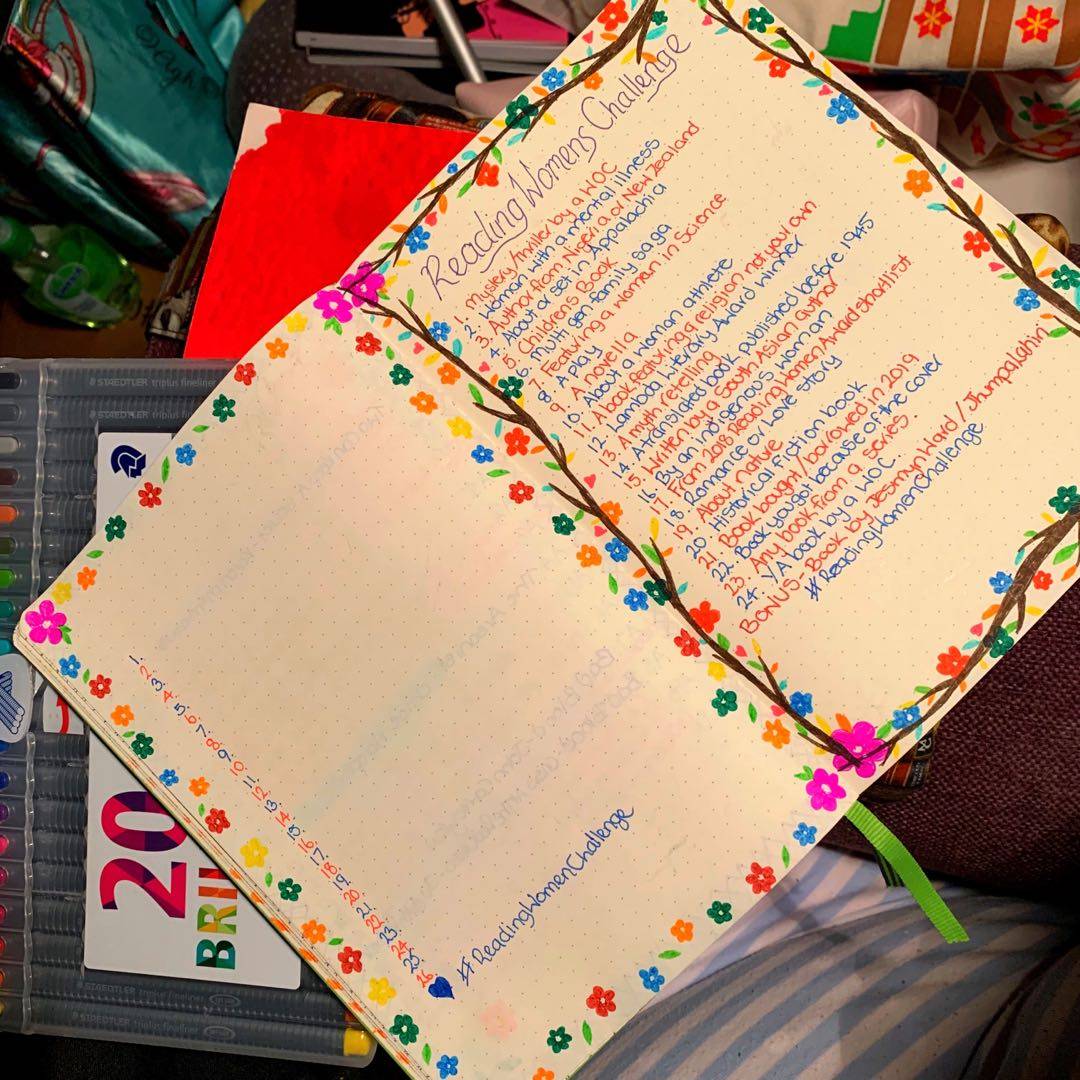 Reading Womens Challenge
1. Mystery/thriller by a WOC
2. Woman with a mental illness
3. Author from Nigeria or New Zealand
4. About or set in Appalachia
5. Childrens Book
6. Multi gen family saga
7. Featuring a woman in Science
8. A play
9. A novella
10. About a woman athlete
11. A book featuring a religion not your own
12. Lambda Literary Award winner
13. A myth retelling
14. A translated book published before 1945
15. Written by a South Asian author
16. By an indigenous woman
17. From 2018 Reading Women Award shortlist
18. Romance or Love story
19. About nature
20. Historical fiction book
21. Book bought/borrowed in 2019
22. Book you bought because of the cover
23. Any book from a series.
24. YA book by a WOC.
BONUS. Book by Jesmyn Ward / Jhumpa lahiri
#ReadingWomenChallenge
1.
2.
3.
4.
5.
6.
7.
8.
9.
10.
11.
12.
13.
14.
15.
16.
17.
18.
19.
20.
21.
22.
23.
24.
25.
26.
#ReadingWomenChallenge
STAEDTLER triplus fineliner
STAEDTLER triplus fineliner
20
BRII
STAEDTLER triplus fineliner
STAEDTLER triplus fineliner